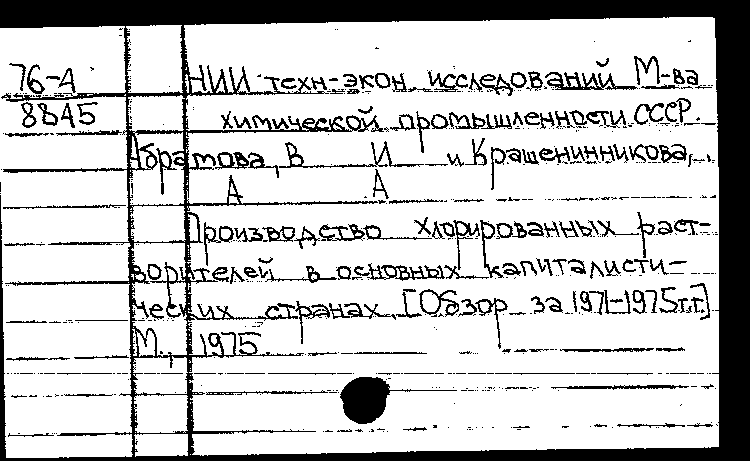 76-4
8845
НИИ техн-экон. исследований М-ва
химической промышленности СССР.
Абрамова, В И и Крашенинникова,
А А
Производство хлорированных раст-
ворителей в основных капиталисти-
ческих странах. [Обзор за 1971-1975 г.г.]
М., 1975.